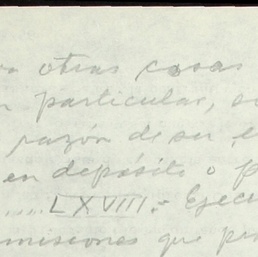 otras cosas
particular,
razón de ser,
en depósito o
.....LXVIII.- Ejecu
misiones que